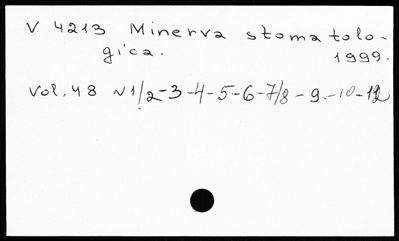 V 4213 Minerva stomatolo-
gica. 1999.
Vol. 48 N 1/2-3-4-5-6-7/8-9-10-12